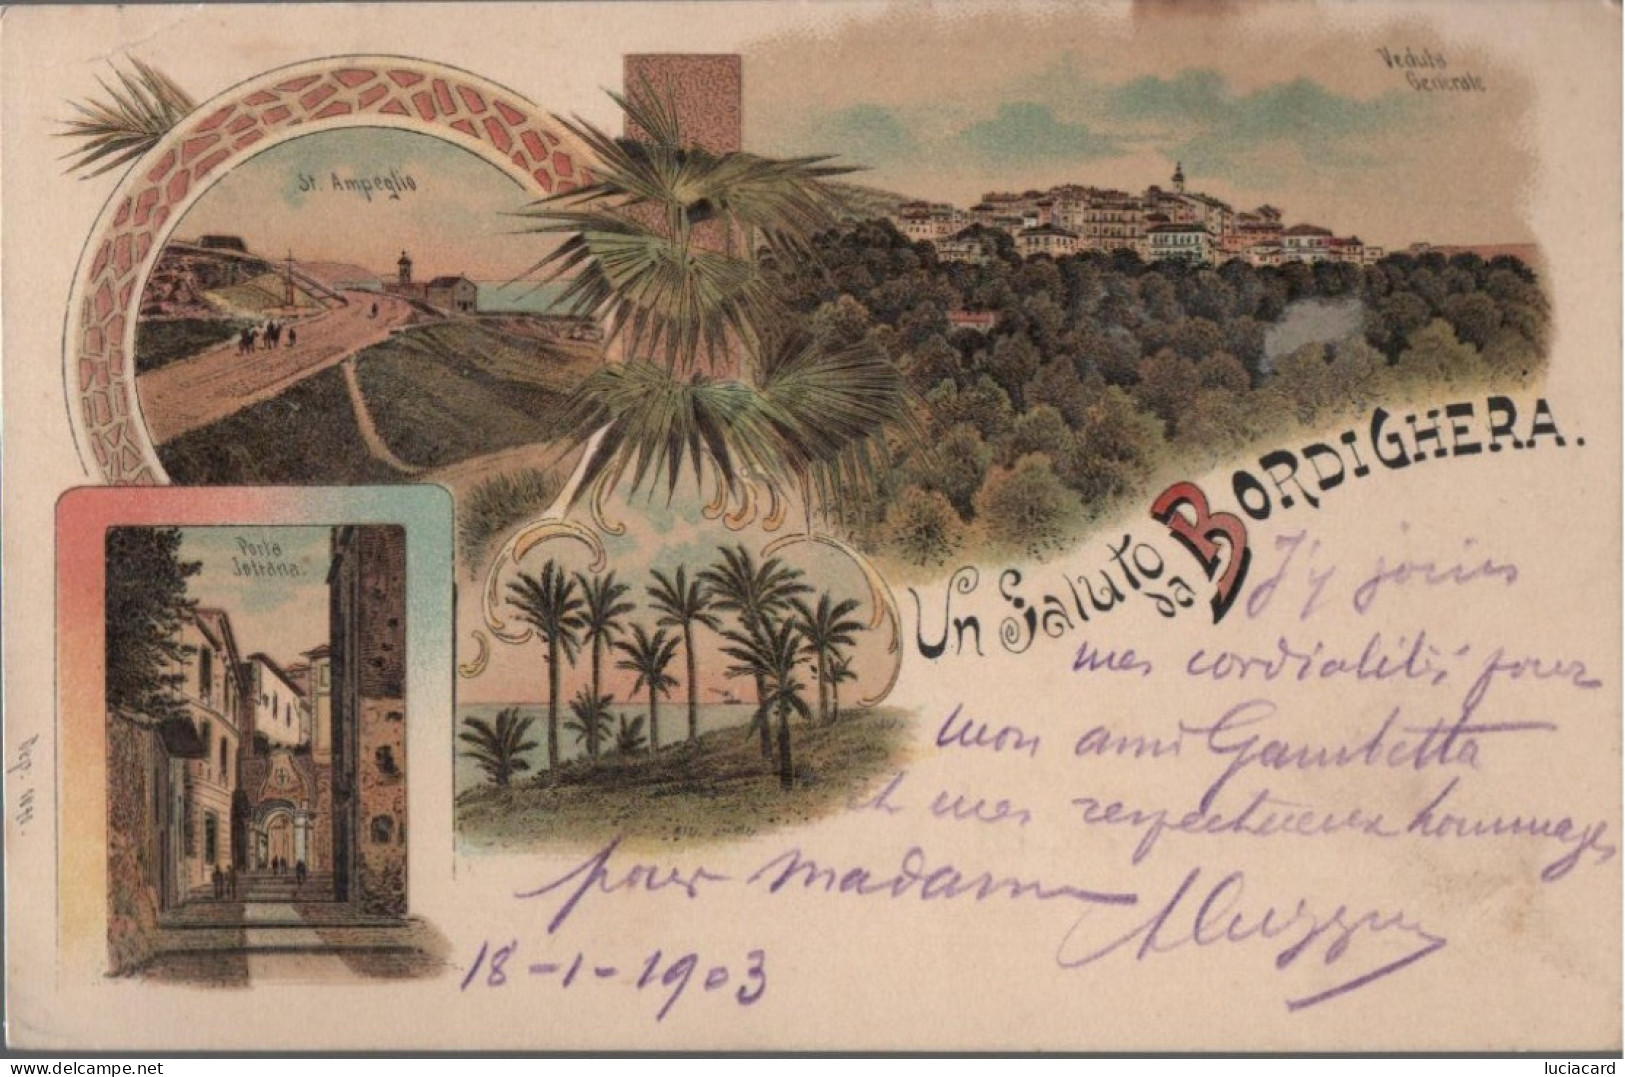 Veduta
Generale
St. Ampeglio
Porta
Sottana.
Un Saluto da BORDIGHERA.
J'y joins
mes cordialités pour
mon ami Gambetta
et mes respectueux hommages
pour madame
18-1-1903
luciacard